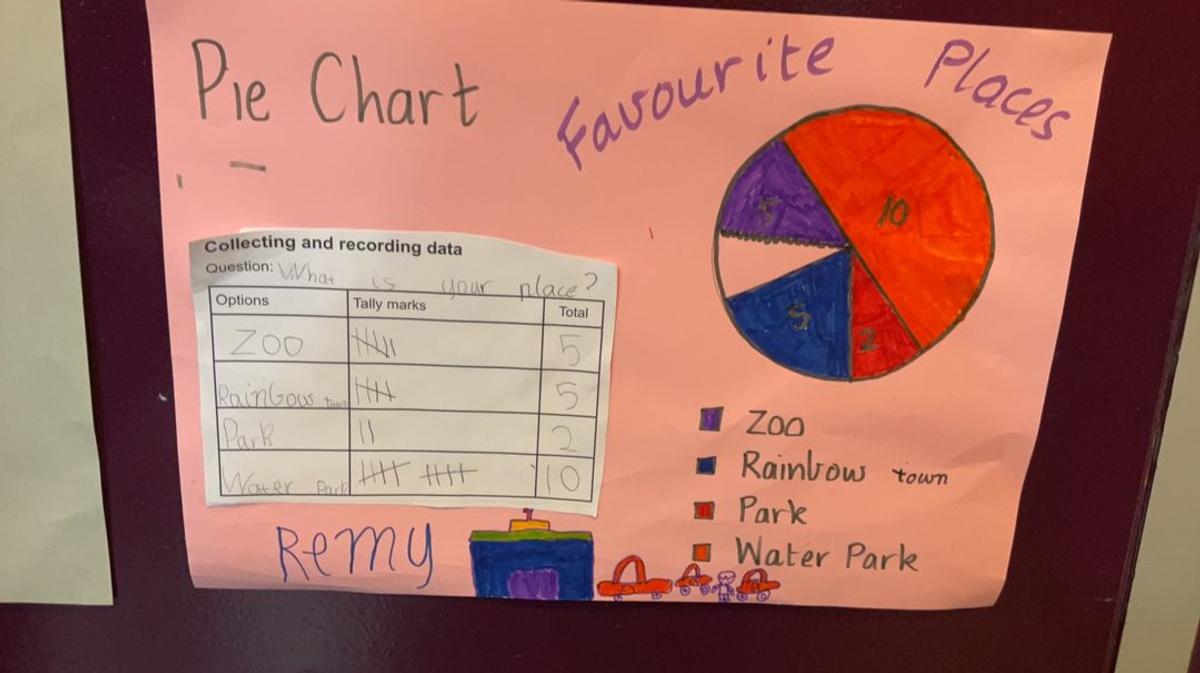 Pie Chart
Favourite Places
Collecting and recording data
Question: What is your place?
Options Tally marks Total
Zoo 5
Rainbow town 5
Park 2
Water Park 10
Remy
5
10
5
2
Zoo
Rainbow town
Park
Water Park